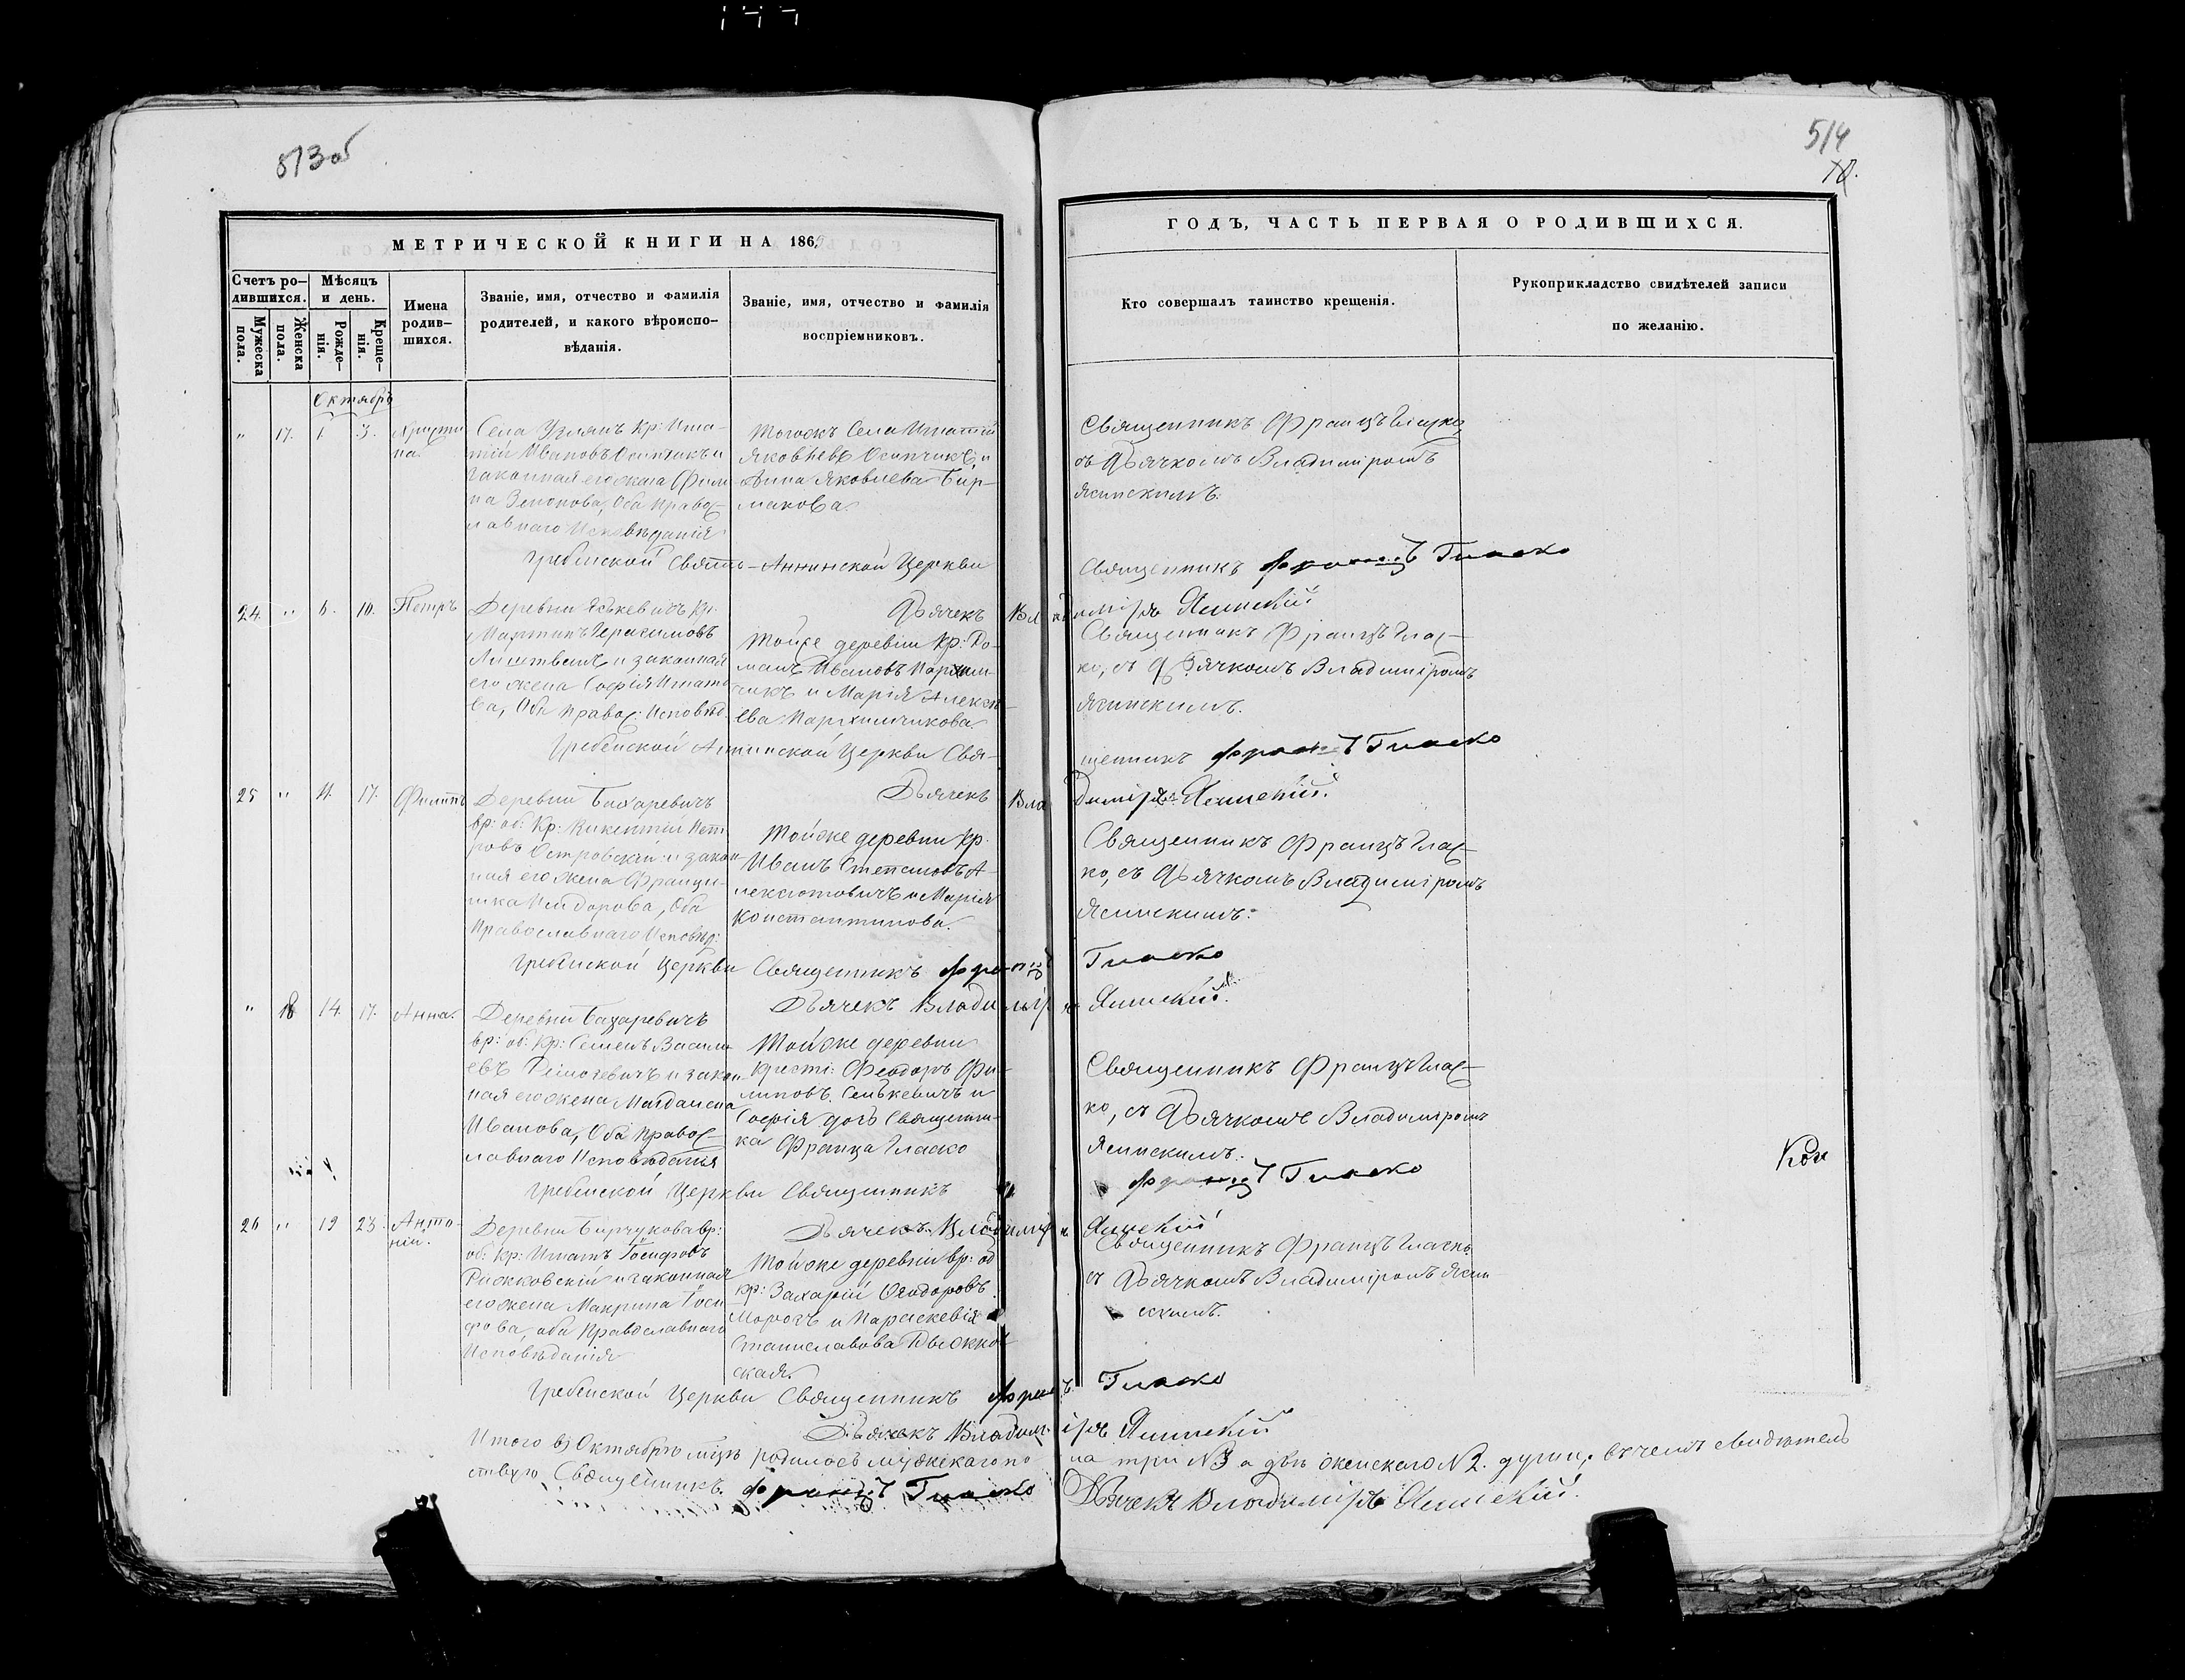 513 об
514
МЕТРИЧЕСКОЙ КНИГИ НА 186
ГОДЪ, ЧАСТЬ ПЕРВАЯ О РОДИВШИХСЯ.
Счетъ ро-
дившихся.
Мужеска
пола.
Женска
пола.
Мѣсяцъ
и день.
Рожде-
нія.
Креще-
нія.
Имена
родив-
шихся.
Званіе, имя, отчество и фамилія
родителей, и какого вѣроиспо-
вѣданія.
Званіе, имя, отчество и фамилія
воспріемниковъ.
Кто совершалъ таинство крещенія.
Рукоприкладство свидѣтелей записи
по желанію.
Октябрь
" 17. 1. 3.
Христи
на.
Села Узлянъ Кр: Игна-
тій Ивановъ Осипчикъ и
законная его жена
Зенонова, Оба Правос-
лавнаго Исповѣданія
Тогожъ Села Игнатій
Яковлевъ Осипчикъ, и
Анна Яковлева Бир-
макова.
Священникъ Францъ Гласко,
съ Дьячкомъ Владиміромъ
Ясинскимъ.
Гребенской Свято-Аннинской Церкви Священникъ Францъ Гласко
Дьячекъ Владиміръ Ясинскій
24. " 6. 10. Петръ
Деревни Кр.
Мартинъ Герасимовъ
и законная
его жена Софія Игнать
ева, Оба Правос: Исповѣд.
Тойже деревни Кр: Ро-
манъ Ивановъ Пархим-
чикъ и Марія Алексѣ-
ева Пархимчикова.
Священникъ Францъ Глас-
ко, съ Дьячкомъ Владиміромъ
Ясинскимъ.
Гребенской Аннинской Церкви Свя-
щенникъ Францъ Гласко
Дьячекъ Владиміръ Ясинскій.
25 " 11. 17. Филиппъ
Деревни Базаревичъ
вр: об: Кр: Викентій Пет-
ровъ Островскій и закон-
ная его жена Францы-
шка Исидорова, Оба
Православнаго Исповѣд:
Тойже деревни Кр.
Иванъ Степановъ А-
лексютовичъ и Марія
Константинова.
Священникъ Францъ Глас-
ко, съ Дьячкомъ Владиміромъ
Ясинскимъ.
Гребенской Церкви Священникъ Францъ Гласко
Дьячекъ Владиміръ Ясинскій.
" 18 14. 17. Анна.
Деревни Базаревичъ
вр: об: Кр: Семенъ Василь-
евъ и закон-
ная его жена Магдалена
Иванова, Оба Правос-
лавнаго Исповѣданія
Тойже деревни
Кресті: Феодоръ Фи-
липовъ Сенькевичъ и
Софія дочь Священни-
ка Франца Гласко
Священникъ Францъ Глас-
ко, съ Дьячкомъ Владиміромъ
Ясинскимъ.
Гребенской Церкви Священникъ Францъ Гласко
Дьячекъ Владиміръ Ясинскій
26 " 19 23. Анто-
ній.
Деревни Бирчукова вр:
об: Кр: Игнатъ Іосифовъ
Рыжковскій и законная
его жена Макрина Іоси-
фова, оба Православнаго
Исповѣданія
Тойже деревни вр: об
кр: Захарій Феодоровъ
Морозъ и Параскевія
Станиславова Рыжков
ская.
Священникъ Францъ Гласко
съ Дьячкомъ Владиміромъ Ясин-
скимъ.
Гребенской Церкви Священникъ Францъ Гласко
Дьячекъ Владиміръ Ясинскій
Итого въ Октябрѣ мцѣ родилось мужскаго по ла три №3 а двѣ женскаго №2. душъ, въ чемъ свидѣтель
ствую Священникъ Францъ Гласко Дьячекъ Владиміръ Ясинскій.